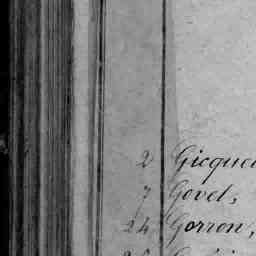 2 Gicquel
7 Govel,
24 Gorron,